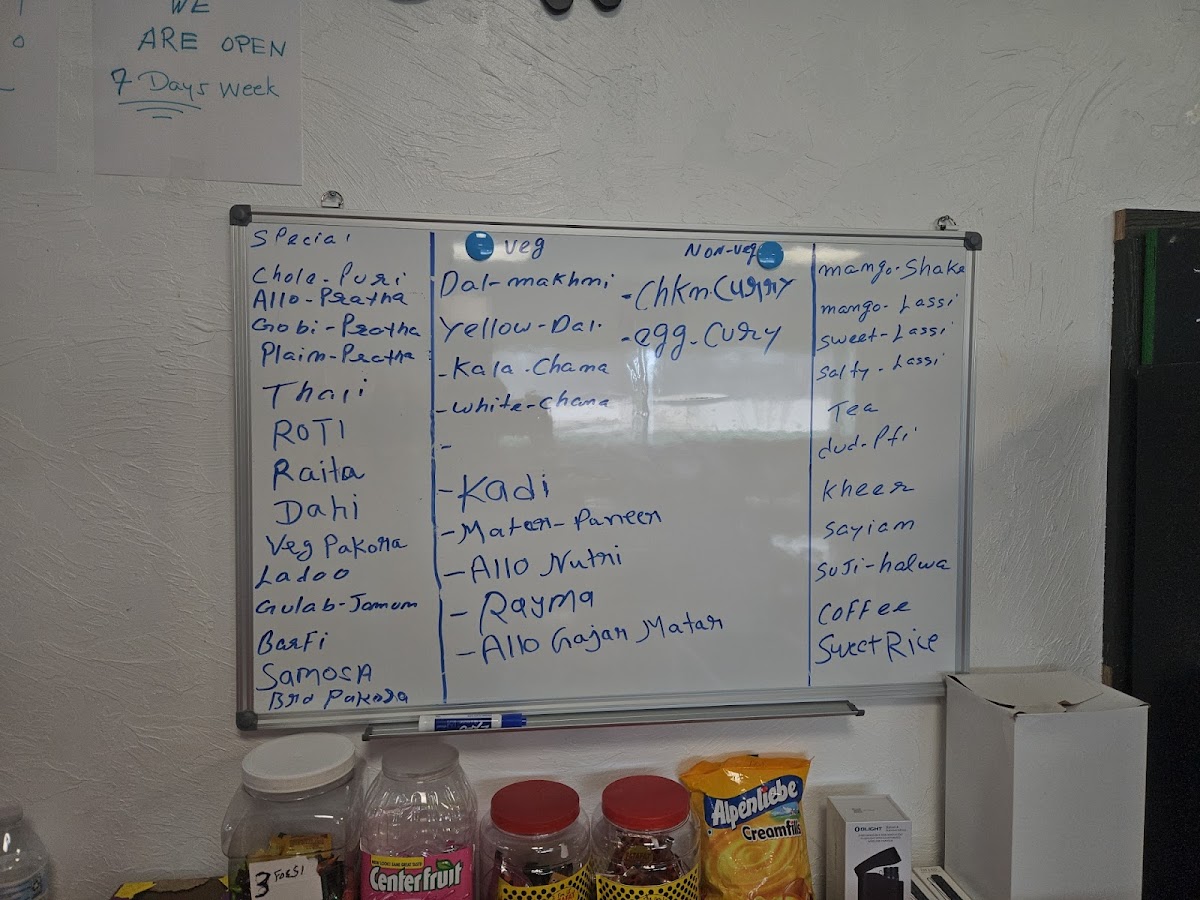 WE
ARE OPEN
7 Days Week
Special
Chole-Puri
Allo-Pratha
Gobi-Pratha
Plain-Pratha
Thali
ROTI
Raita
Dahi
Veg Pakora
Ladoo
Gulab-Jamum
Barfi
SAMOSA
Brd Pakora
veg
Dal-makhni
Yellow-Dal.
-Kala-Chana
-White-Chana
-
-Kadi
-Mater-Paneer
-Allo Nutri
-Rayma
-Allo Gajar Matar
Non-veg
-Chkn.Curry
-egg-Cury
mango-Shake
mango-Lassi
Sweet-Lassi
Salty-Lassi
Tea
dud-Pti
Kheer
Sayiam
SuJi-halwa
COFFee
Sweet Rice
3 FOR $1
Centerfruit
Alpenliebe
Creamfills
OLIGHT